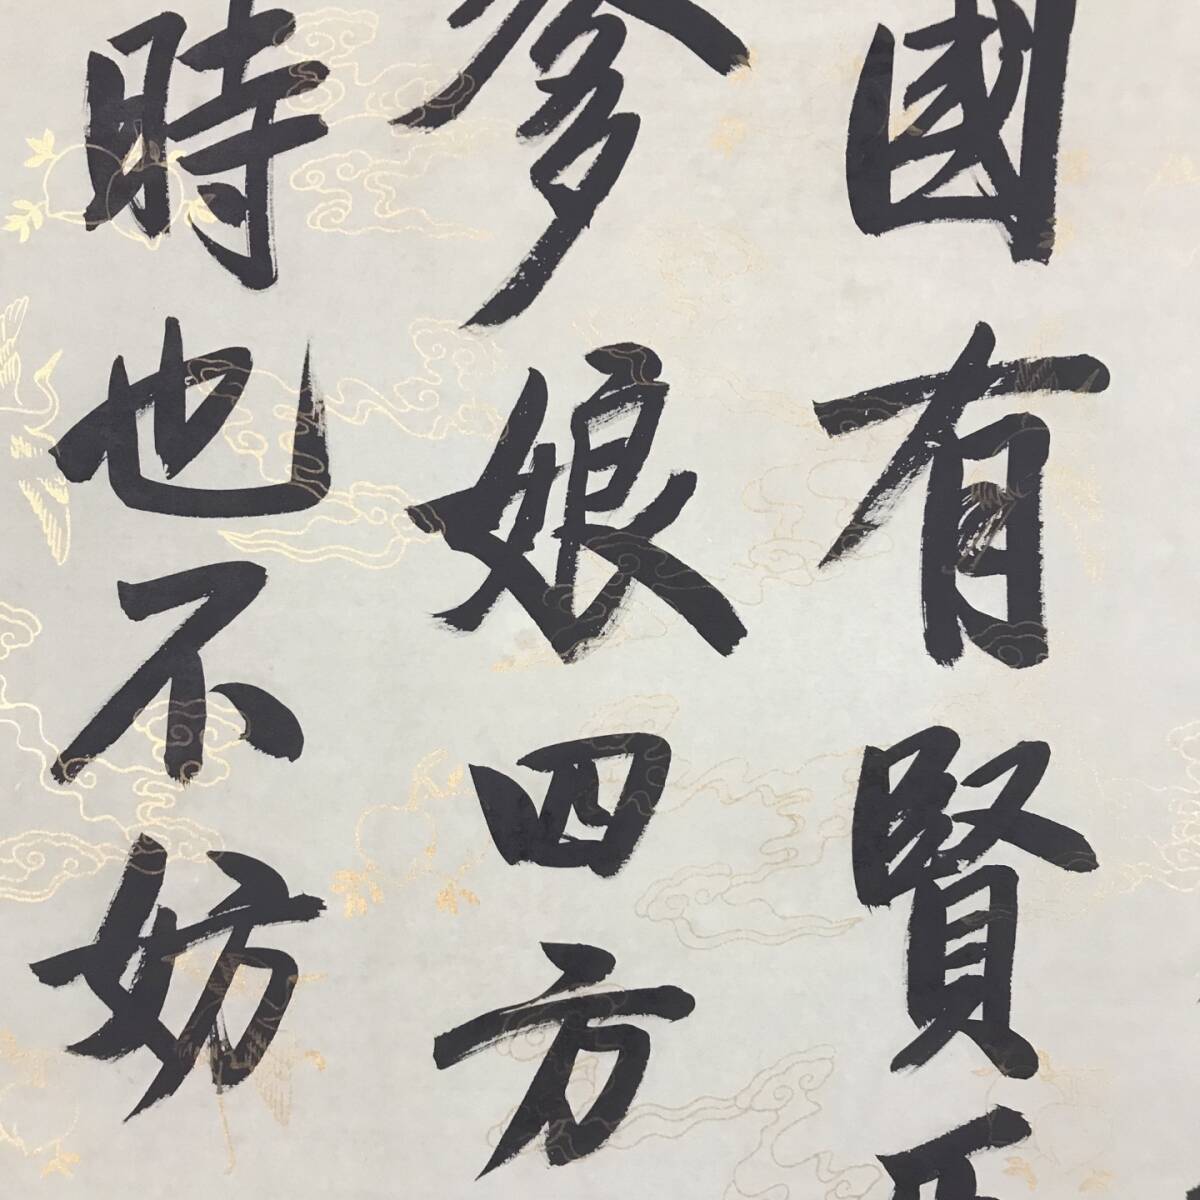 國有賢
爹娘四方
時也不妨